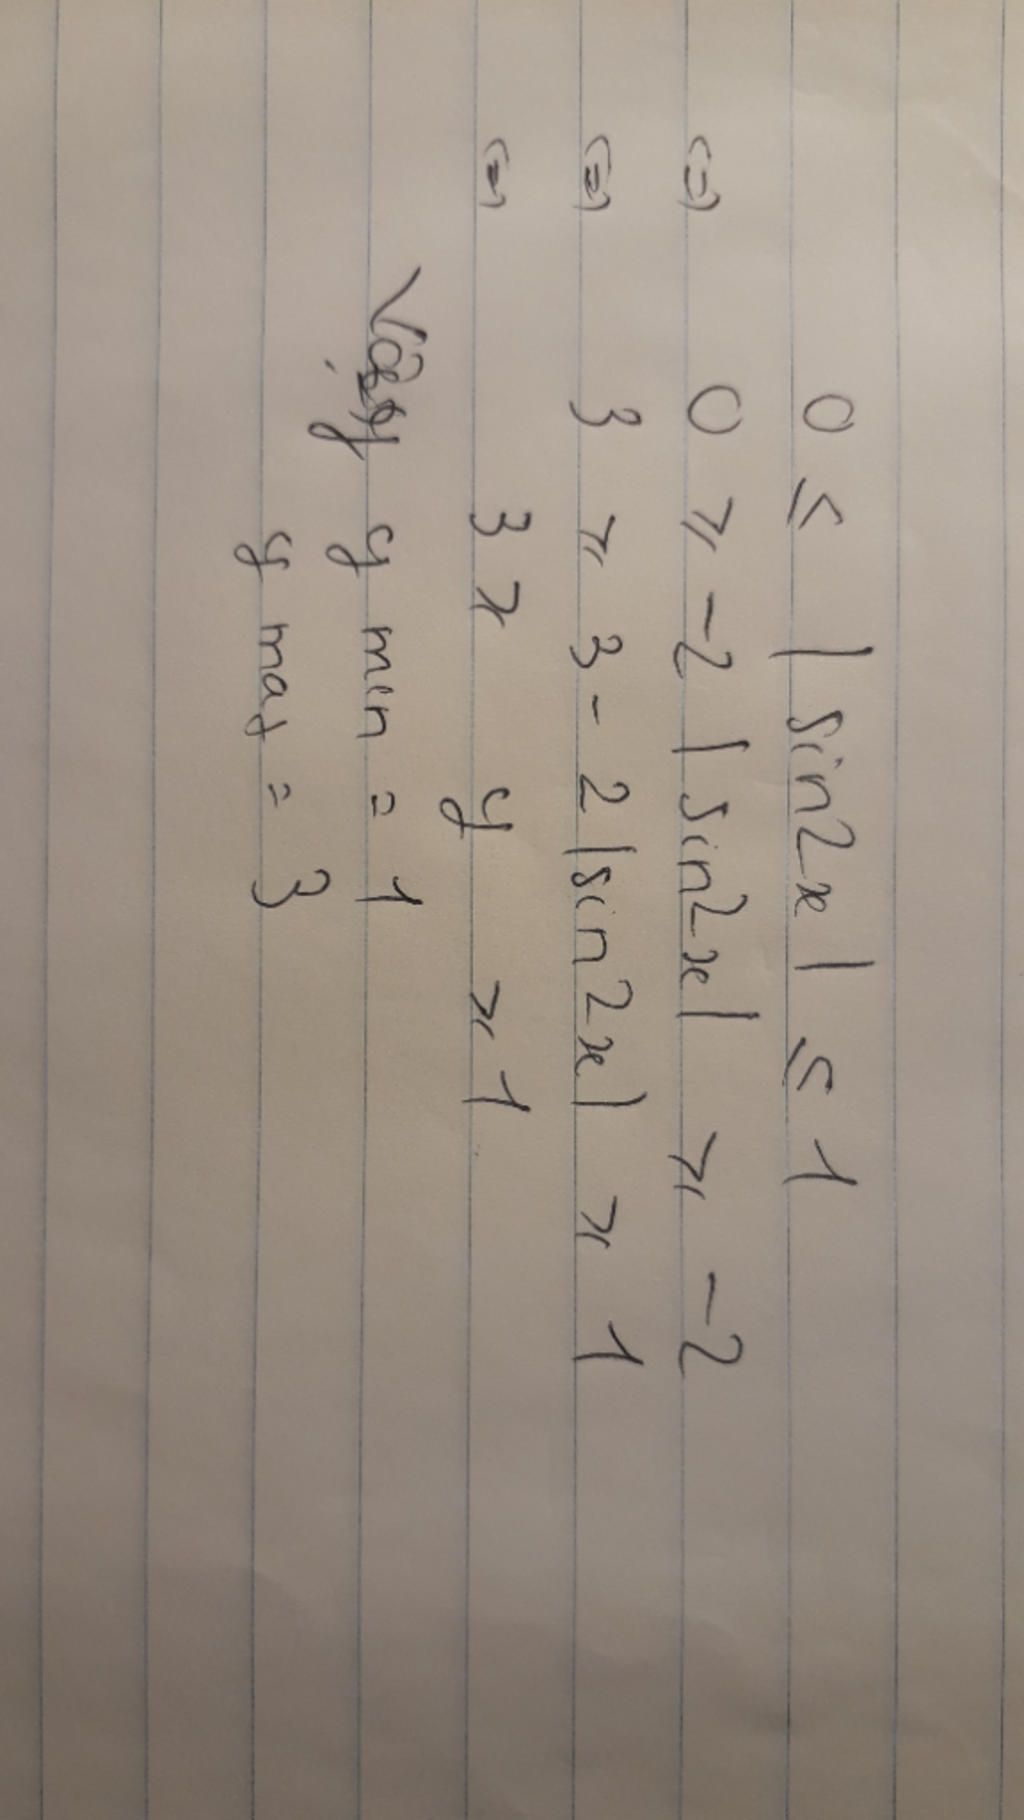 0 ≤ |sin2x| ≤ 1
(=) 0 ≥ -2|sin2x| ≥ -2
(=) 3 ≥ 3 - 2|sin2x| ≥ 1
(=) 3 ≥ y ≥ 1
Vậy y min = 1
y max = 3